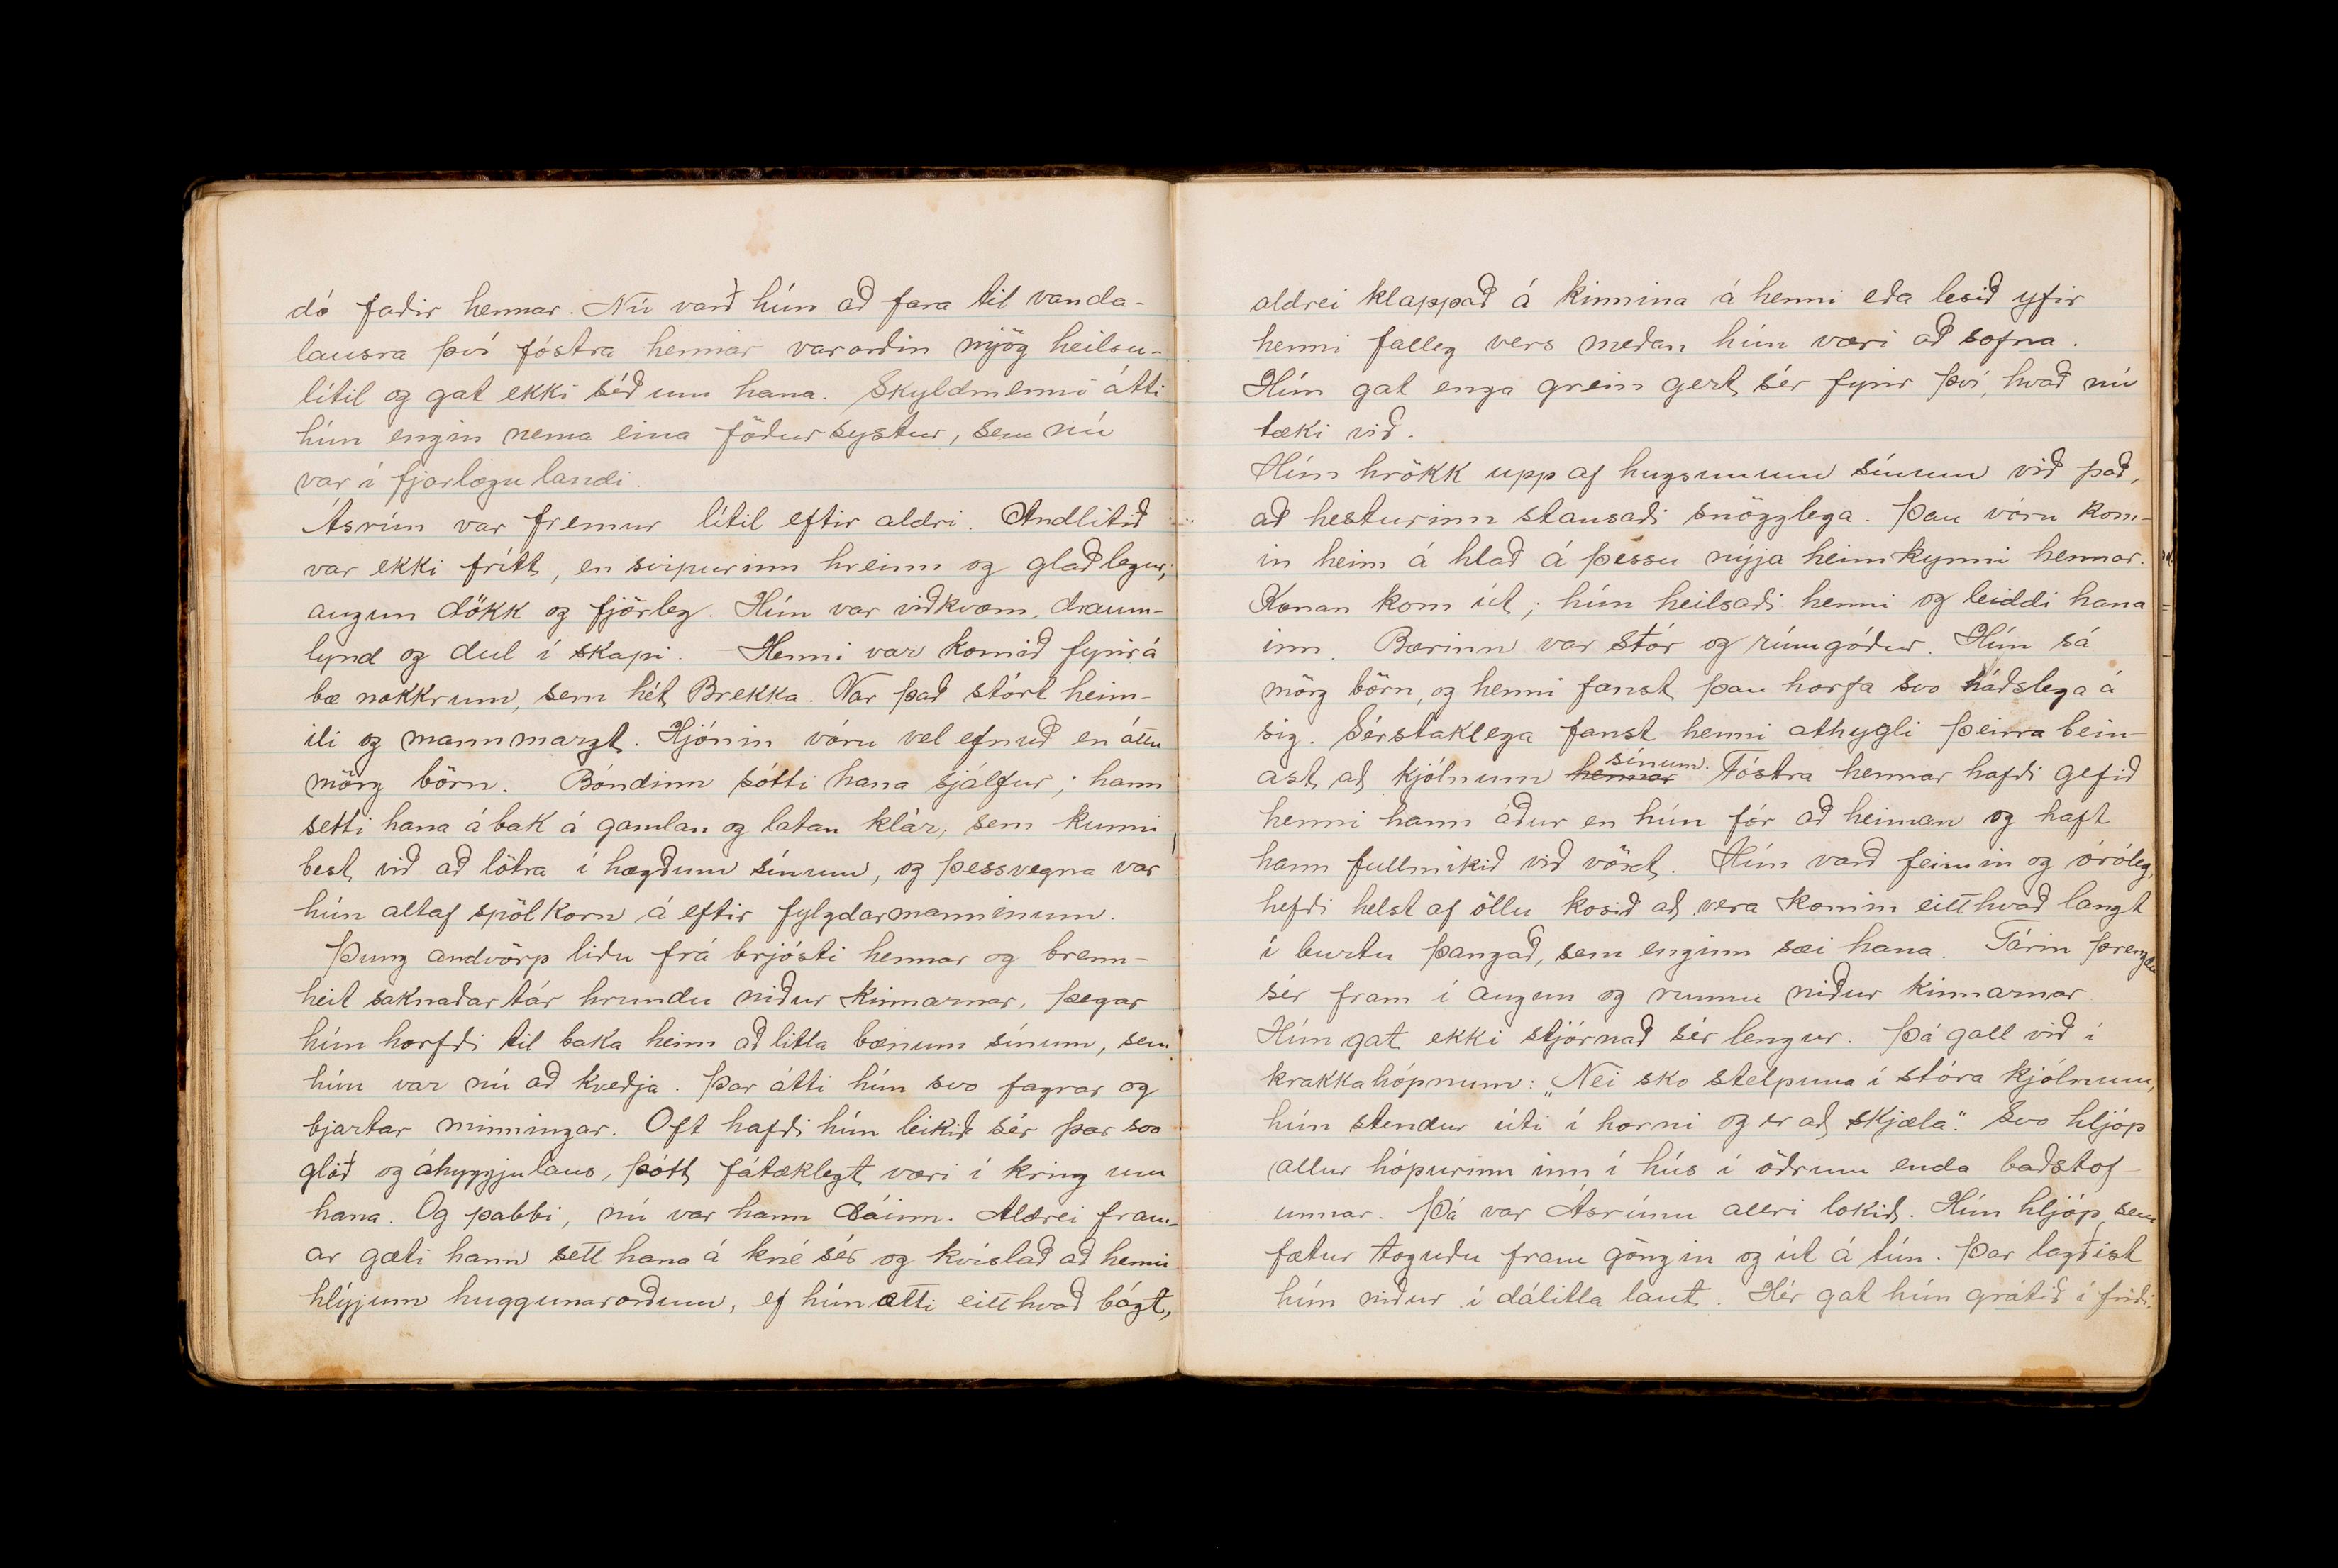 dó faðir hennar. Nú varð hún að fara til vanda-
lausra því fóstra hennar var orðin mjög heilsu-
lítil og gat ekki séð um hana. Skyldmenni átti
hún engin nema eina föðursystur, sem nú
var í fjarlægu landi.
Ásrún var fremur lítil eftir aldri. Andlitið
var ekki frítt, en svipurinn hreinn og glaðlegur,
augun dökk og fjörleg. Hún var viðkvæm, draum-
lynd og dul í skapi. Henni var komið fyrir á
bæ nokkrum, sem hét Brekka. Var það stórt heim-
ili og mannmargt. Hjónin vóru vel efnuð en áttu
mörg börn. Bóndinn sótti hana sjálfur; hann
setti hana á bak á gamlan og latan klár, sem kunni
best við að lötra í hægðum sínum, og þessvegna var
hún altaf spölkorn á eftir fylgdarmanninum.
Þung andvörp liðu frá brjósti hennar og brenn-
heit saknaðartár hrundu niður kinnarnar, þegar
hún horfði til baka heim að litla bænum sínum, sem
hún var nú að kveðja. Þar átti hún svo fagrar og
bjartar minningar. Oft hafði hún leikið sér þar svo
glöð og áhyggjulaus, þótt fátæklegt væri í kring um
hana. Og pabbi, nú var hann dáinn. Aldrei fram-
ar gæti hann sett hana á kné sér og kvíslað að henni
hlýjum huggunarorðum, ef hún ætti eitthvað bágt,
aldrei klappað á kinnina á henni eða lesið yfir
henni falleg vers meðan hún væri að sofna.
Hún gat enga grein gert sér fyrir því, hvað nú
tæki við.
Hún hrökk upp af hugsunum sínum við það,
að hesturinn stansaði snögglega. Þau vóru kom-
in heim á hlað á þessu nýja heimkynni hennar.
Konan kom út; hún heilsaði henni og leiddi hana
inn. Bærinn var stór og rúmgóður. Hún sá
mörg börn, og henni fanst þau horfa svo háðslega á
sig. Sérstaklega fanst henni athygli þeirra bein-
ast að kjólnum hennar sínum. Fóstra hennar hafði gefið
henni hann áður en hún fór að heiman og haft
hann fullmikið við vöxt. Hún varð feimin og óróleg,
hefði helst af öllu kosið að vera komin eitthvað langt
í burtu þangað, sem enginn sæi hana. Tárin þrengdu
sér fram í augun og runnu niður kinnarnar.
Hún gat ekki stjórnað sér lengur. Þá gall við í
krakkahópnum: „Nei sko stelpuna í stóra kjólnum,
hún stendur úti í horni og er að skjæla." Svo hljóp
allur hópurinn inn í hús í öðrum enda baðstof-
unnar. Þá var Ásrúnu allri lokið. Hún hljóp sem
fætur toguðu fram göngin og út á tún. Þar lagðist
hún niður í dálitla laut. Hér gat hún grátið í friði.